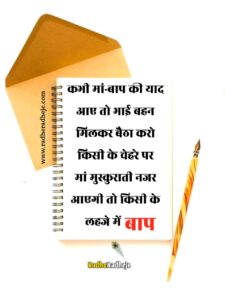 कभी मां-बाप की याद
आए तो भाई बहन
मिलकर बैठा करो
किसी के चेहरे पर
मां मुस्कुराती नजर
आएगी तो किसी के
लहजे में बाप
www.radheradheje.com
RadheRadheje